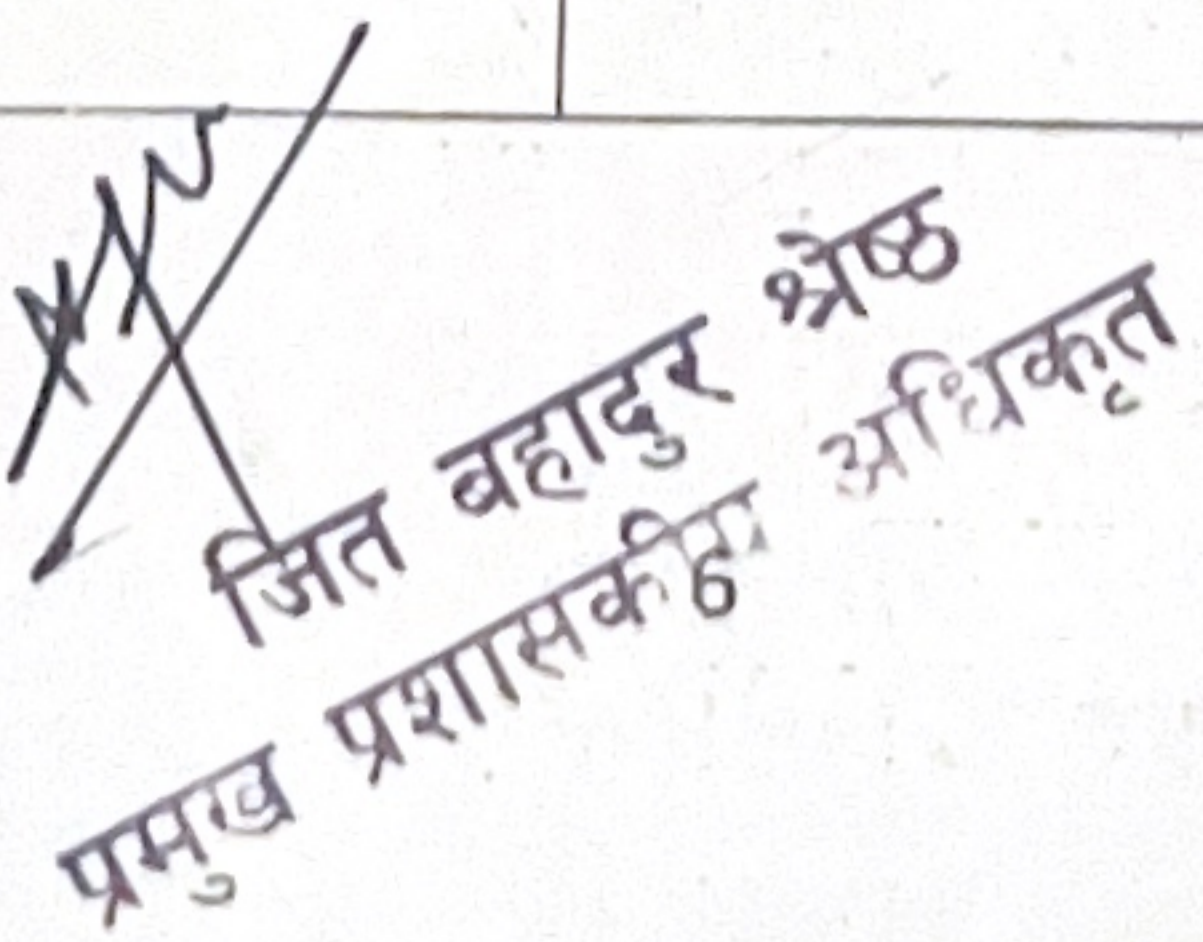 जित बहादुर श्रेष्ठ
प्रमुख प्रशासकीय अधिकृत